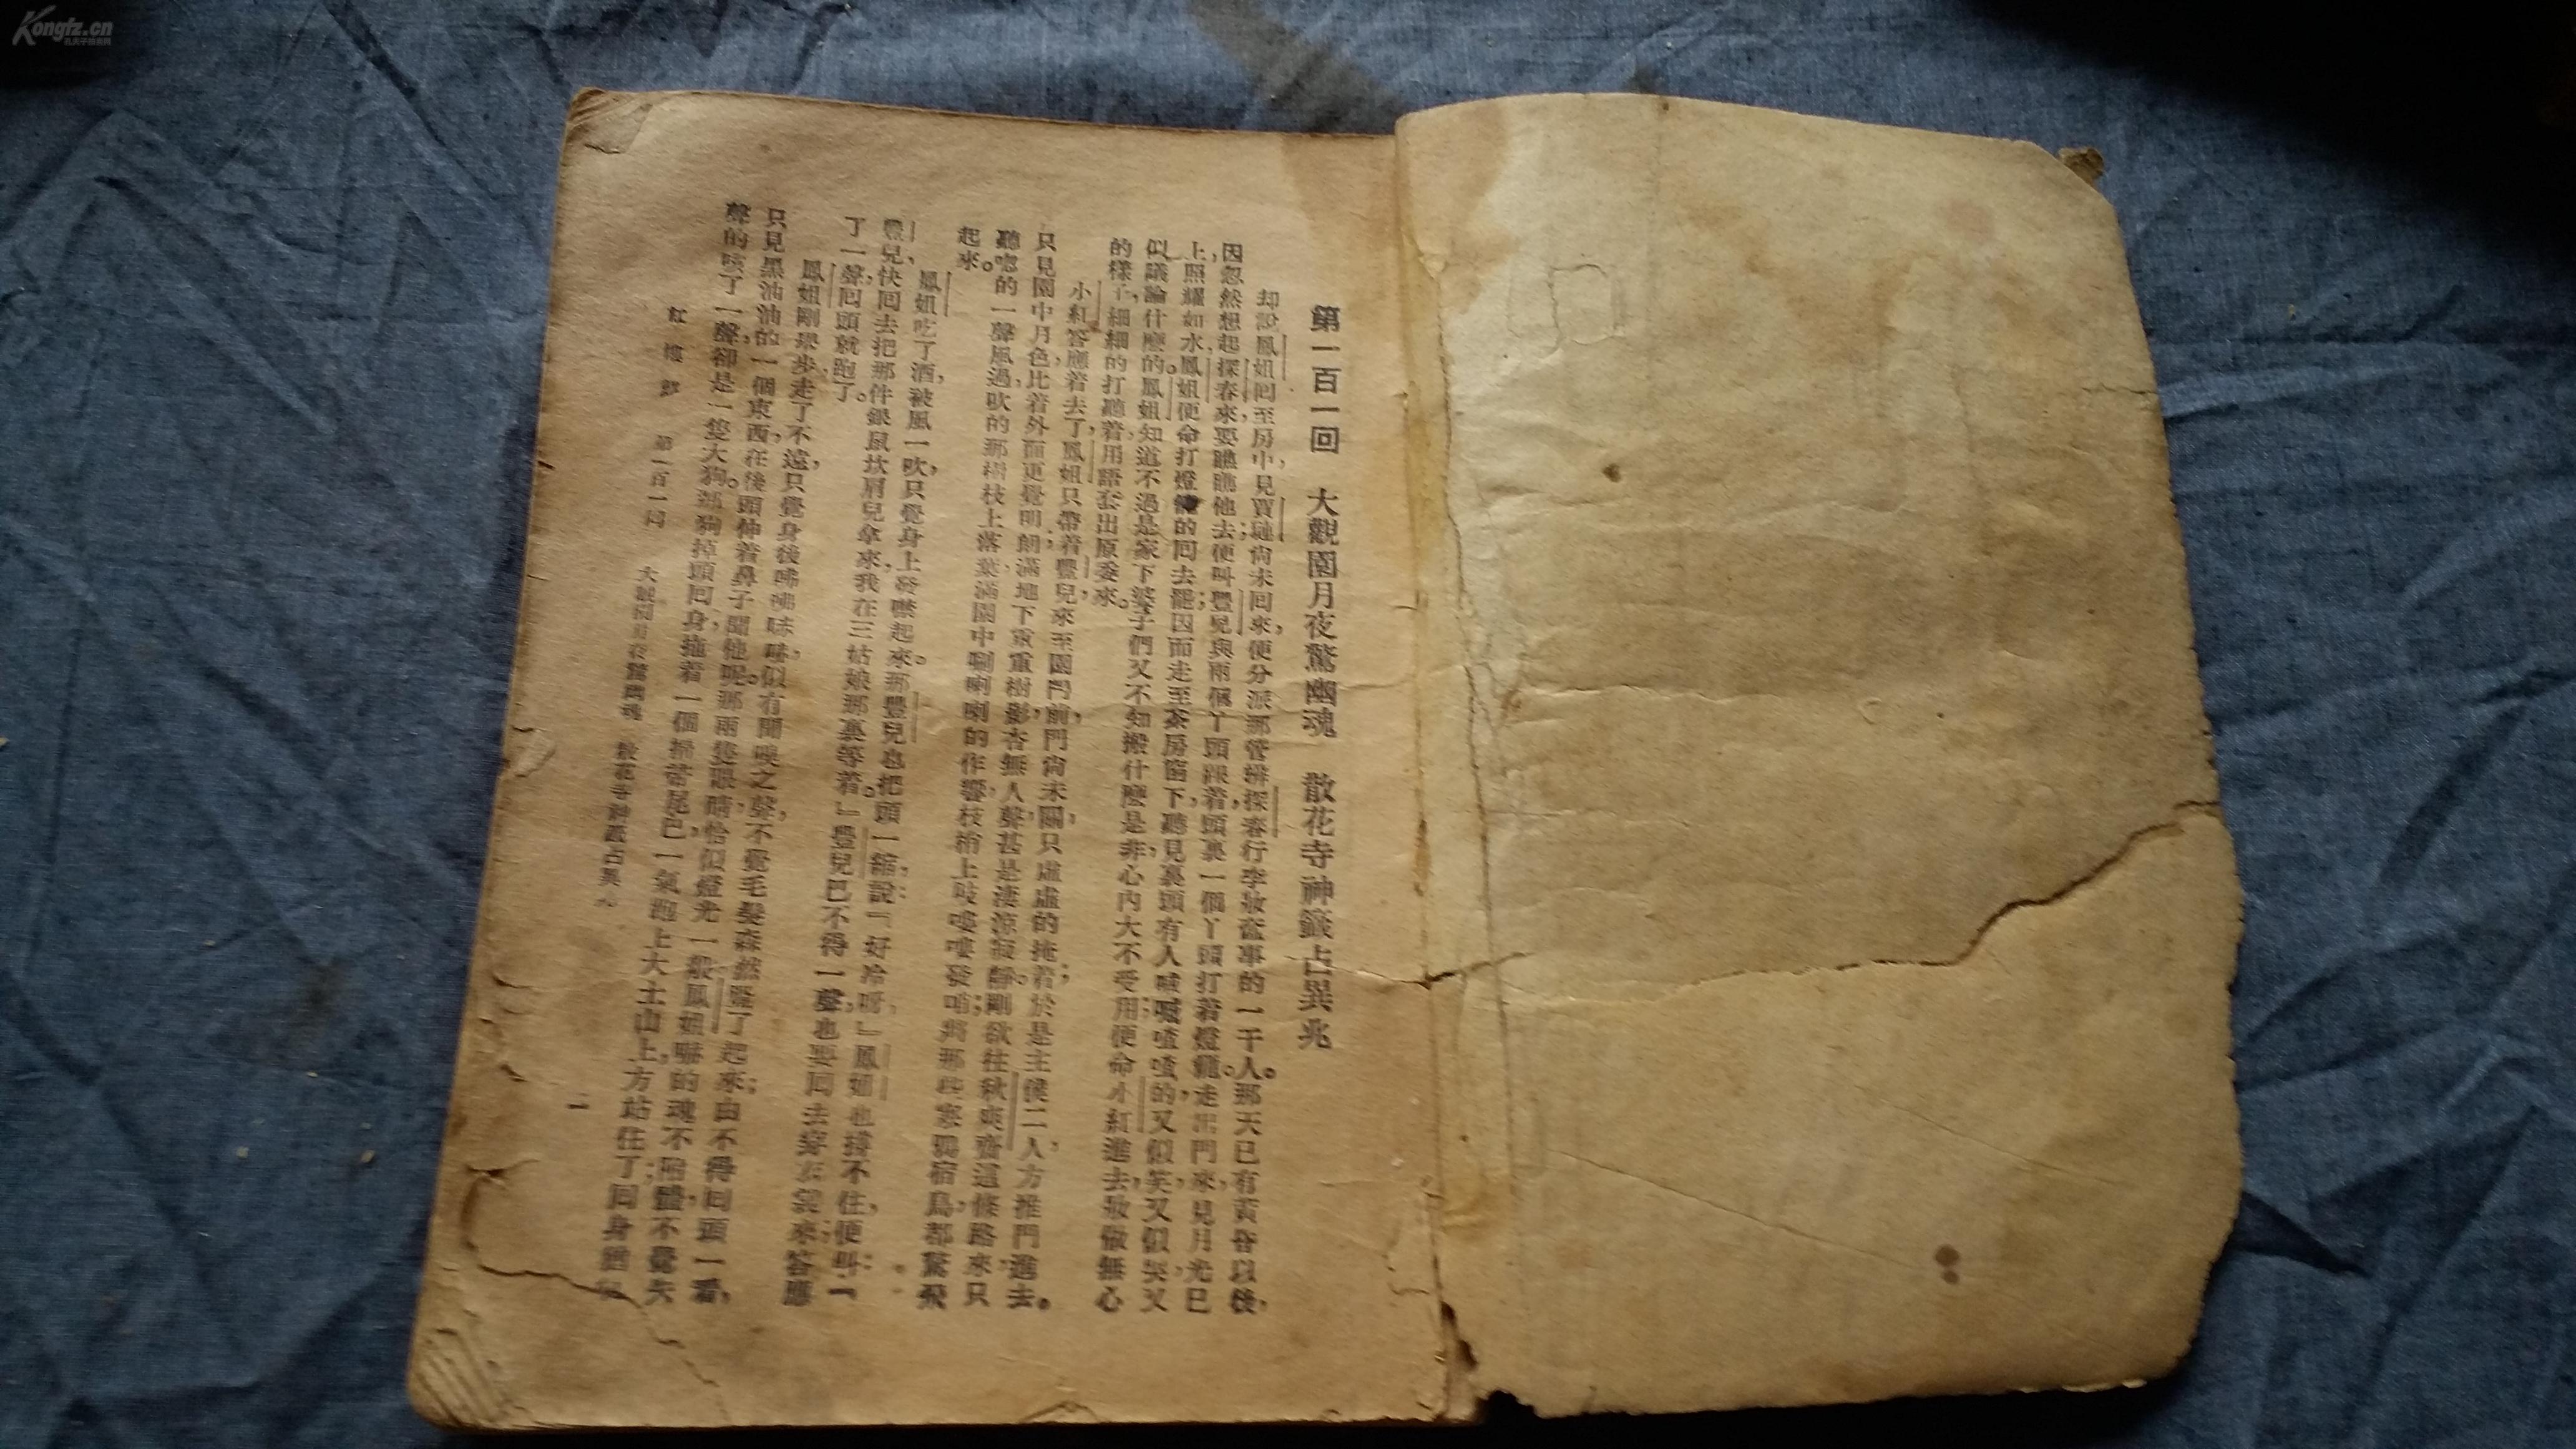 第一百一回　大觀園月夜驚幽魂　散花寺神籤占異兆
却說鳳姐回至房中，見賈璉尚未回來，便分派那管辦探春行李妝奩事的一干人。那天已有黃昏以後，
因忽然想起探春來，要瞧瞧他去，便叫豐兒與兩個丫頭跟着，頭裏一個丫頭打着燈籠。走出門來，見月光已
上，照耀如水，鳳姐便命打燈籠的回去罷；因而走至茶房窗下，聽見裏頭有人嘁嘁喳喳的，又似笑，又似哭，又
似議論什麼的。鳳姐知道不過是家下婆子們又不知搬什麼是非，心內大不受用，便命小紅進去，妝做無心
的樣子，細細的打聽着，用話套出原委來。
小紅答應着去了。鳳姐只帶着豐兒來至園門前，門尚未關，只虛虛的掩着；於是主僕二人，方推門進去。
只見園中月色比着外面更覺明朗，滿地下重重樹影，杳無人聲，甚是淒涼寂靜。剛欲往秋爽齋這條路來，只
聽唿的一聲風過，吹的那樹枝上落葉滿園中唰喇喇的作響，枝梢上吱嘍嘍發哨，將那些寒鴉宿鳥都驚飛
起來。
鳳姐吃了酒，被風一吹，只覺身上發噤起來。那豐兒也把頭一縮，說：『好冷呀！』鳳姐也撐不住，便叫：『
豐兒，快回去把那件銀鼠坎肩兒拿來，我在三姑娘那裏等着。』豐兒巴不得一聲，也要回去穿衣裳來；答應
了一聲，回頭就跑了。
鳳姐剛舉步走了不遠，只覺身後咈咈哧哧，似有聞嗅之聲，不覺毛髮森然豎了起來；由不得回頭一看，
只見黑油油的一個東西，在後頭伸着鼻子聞他呢。那兩隻眼睛恰似燈光一般。鳳姐嚇的魂不附體，不覺失
聲的咳了一聲，卻是一隻大狗。那狗掉頭回身，拖着一個掃帚尾巴，一氣跑上大土山上，方站住了；回身猶
紅樓夢　第一百一回　大觀園月夜驚幽魂　散花寺神籤占異兆　一
Kongfz.cn